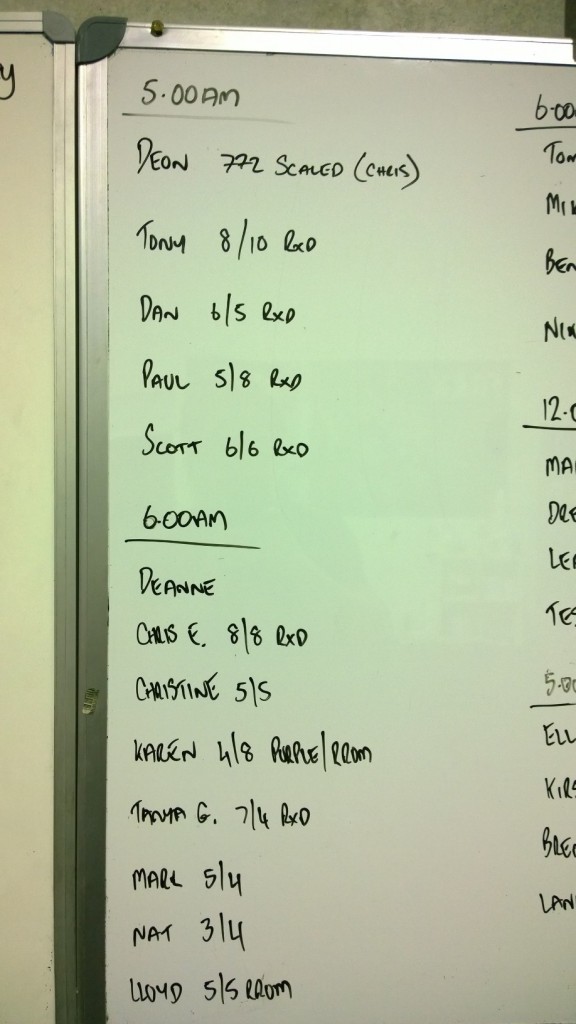 y
5.00AM
DEON 772 SCALED (CHRIS)
TONY 8/10 RXD
DAN 6/5 RXD
PAUL 5/8 RXD
SCOTT 6/6 RXD
6.00AM
DEANNE
CHRIS E. 8/8 RXD
CHRISTINE 5/5
KAREN 4/8 PURPLE/RROM
TANYA G. 7/4 RXD
MARK 5/4
NAT 3/4
LLOYD 5/5 RROM
6.00
TOM
MIK
BEN
12.0
MAR
DRE
LEA
TES
5.00
ELL
KIRS
BREO
LAN